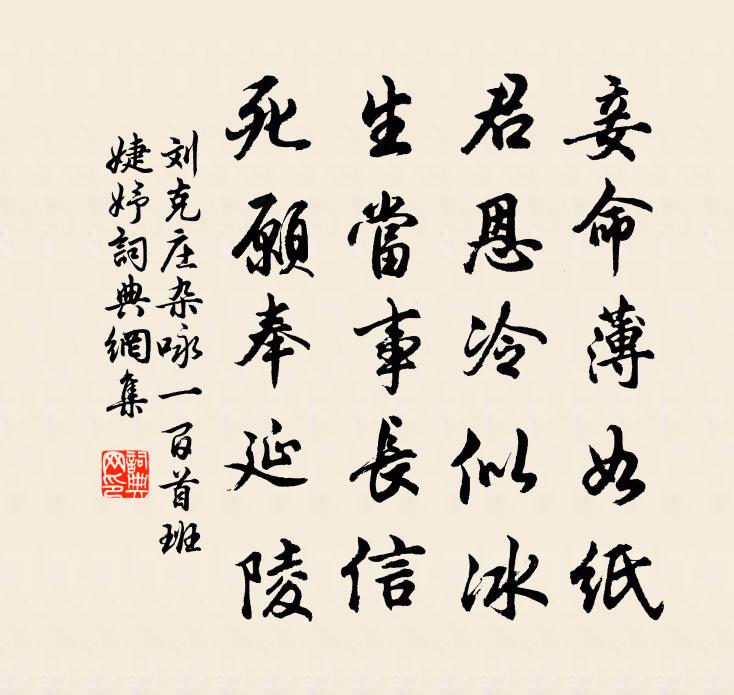 妾命薄如紙
君恩冷似冰
生當事長信
死願奉延陵
刘克庄杂咏一百首班
婕妤詞典網集
詞典
网印